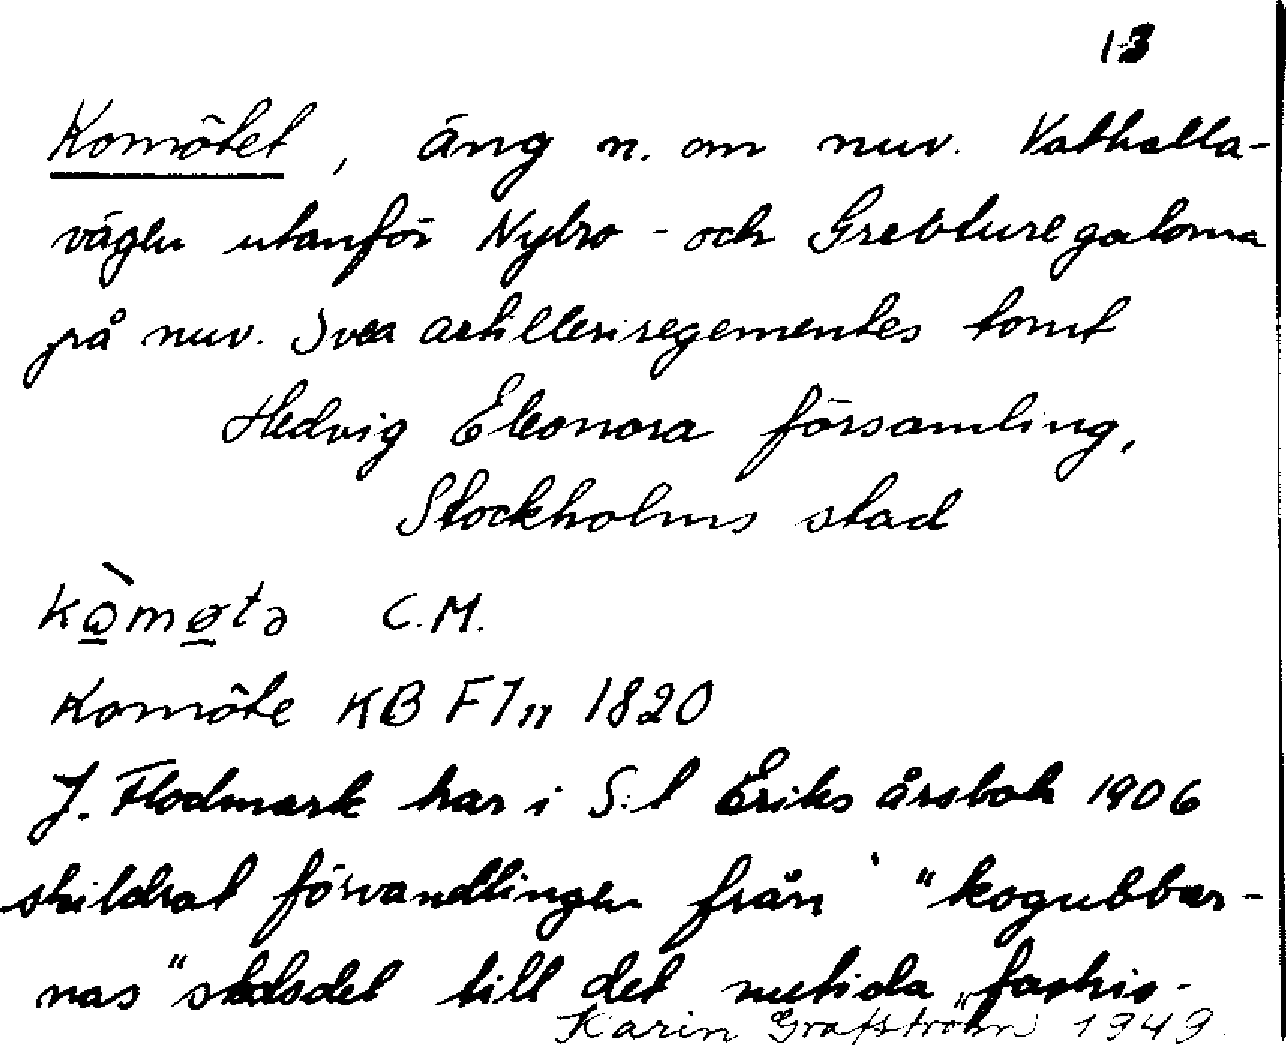 13
Komötet, äng n. om nuv. Valhalla-
vägen utanför Nybro- och Grevturegatorna
på nuv. Svea artilleriregementes tomt
Hedvig Eleonora församling,
Stockholms stad
kòmøtə C.M.
Komöte KB F7n 1820
J. Flodmark har i S:t Eriks årsbok 1906
skildrat förvandlingen från "kogubbar-
nas" stadsdel till det nutida „fashio-
Karin Grafström 1949.